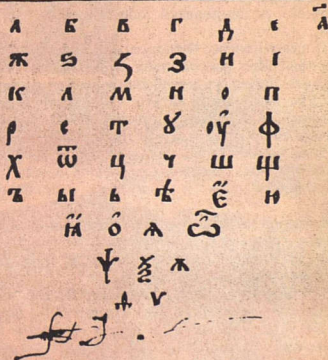 а҆
а б в г д є
ж ѕ ꙁ з и і
к л м н о п
р с т ꙋ оу ф
х ѿ ц ч ш щ
ъ ы ь ѣ є ю
ꙗ о ѧ ѽ
ѱ ѯ ѫ
ѵ